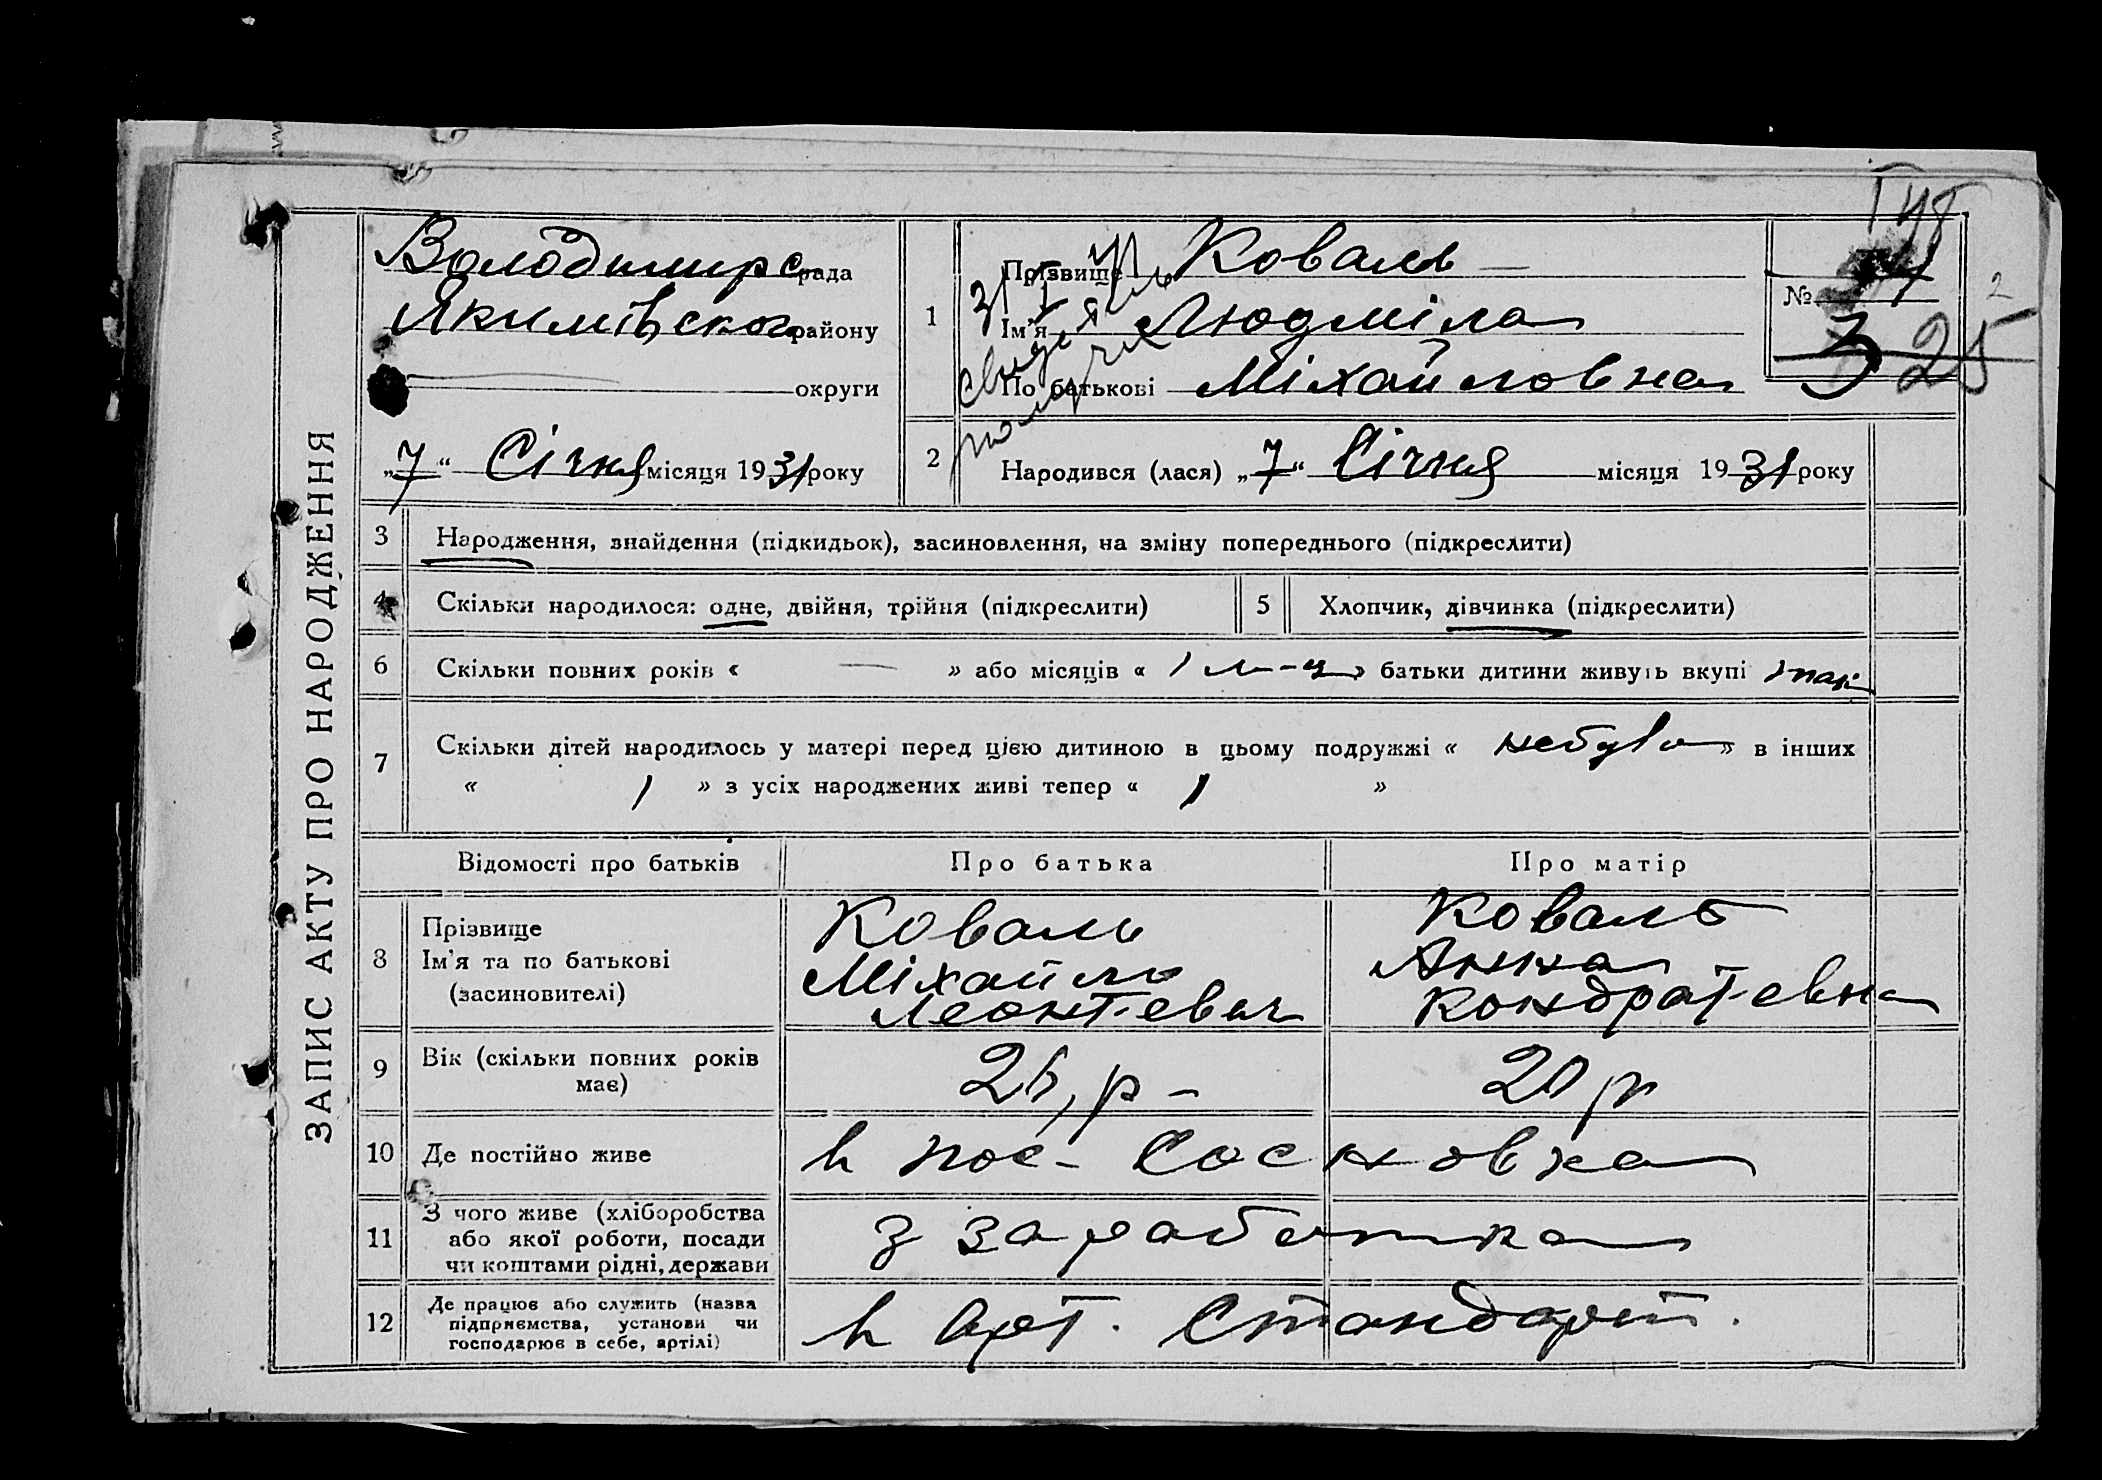 ЗАПИС АКТУ ПРО НАРОДЖЕННЯ
Володимирс рада
Якимівськог району
округи
„7“ Січня місяця 1931 року
1
Прізвище Коваль
Ім'я Людміла
По батькові Міхайловна
№
3 25
2
2 Народився (лася) „7“ Січня місяця 1931 року
3 Народження, знайдення (підкидьок), засиновлення, на зміну попереднього (підкреслити)
4 Скільки народилося: одне, двійня, трійня (підкреслити)
5 Хлопчик, дівчинка (підкреслити)
6 Скільки повних років « — » або місяців « 1 м-ц » батьки дитини живуть вкупі
7 Скільки дітей народилось у матері перед цією дитиною в цьому подружжі « небуло » в інших
« 1 » з усіх народжених живі тепер « 1 »
Відомості про батьків Про батька Про матір
8 Прізвище
Ім'я та по батькові
(засиновителі)
Коваль
Міхайло
Леонтьевич
Коваль
Анна
Кондратьевна
9 Вік (скільки повних років
має)
р - 20 р
10 Де постійно живе в пос- Сосновка
11 З чого живе (хліборобства
або якої роботи, посади
чи коштами рідні, держави
з заработка
12 Де працює або служить (назва
підприємства, установи чи
господарює в себе, артілі)
в Арт. Стандарт.